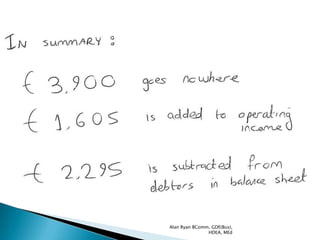 IN SUMMARY :
€ 3,900 goes nowhere
€ 1,605 is added to operating
income
€ 2,295 is subtracted from
debtors in balance sheet
Alan Ryan BComm, GDE(Bus),
HDEA, MEd